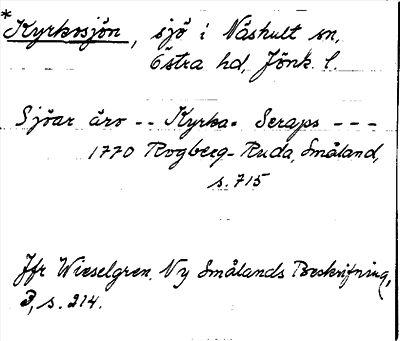 *Kyrkosjön, sjö i Näshult sn,
Östra hd, Jönk. l.
Sjöar äro -- Kyrko- Seraps ---
1770 Rogberg-Ruda, Småland,
s. 715
Jfr Wieselgren. Ny Smålands Beskrifning,
3, s. 214.